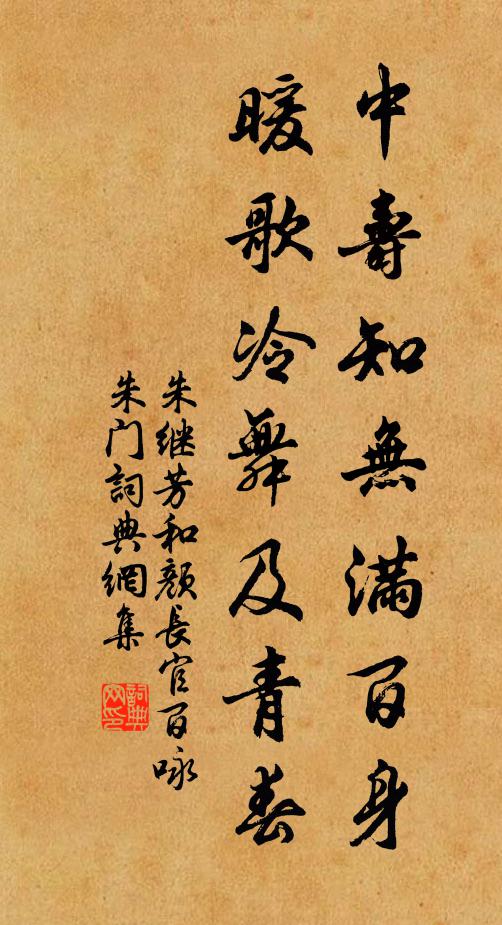 中壽知無滿百身
暖歌冷舞及青春
朱继芳和顏長官百咏
朱门詞典網集
詞典
网印